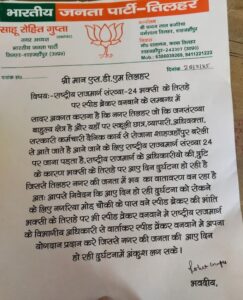 भारतीय जनता पार्टी-तिलहर
साहू रोहित गुप्ता
नगर अध्यक्ष
भारतीय जनता पार्टी
श्री मान एस.डी.एम तिलहर
विषय:-राष्ट्रीय राजमार्ग संख्या-24 भक्सी के तिराहे
पर स्पीड ब्रेकर बनवाने के सम्बन्ध में
सादर अवगत कराना है कि नगर तिलहर जो कि जनसंख्या
बाहुल्य क्षेत्र है और यहाँ पर स्कूली छात्र,व्यापारी,अधिवक्ता,
सरकारी कर्मचारी दैनिक कार्य से रोजाना शाहजहाँपुर बरेली
से आते जाते है आने जाने के लिए राष्ट्रीय राजमार्ग संख्या-24
पर जाना पड़ता है,राष्ट्रीय राजमार्ग के अधिकारीयों की त्रुटि
के कारण भक्सी के तिराहे पर आए दिन दुर्घटना हो रही है
जिससे तिलहर नगर की जनता में भय का वातावरण बन रहा
है। अतः आपसे निवेदन कि आए दिन हो रही दुर्घटना को रोकने
के लिए नगरिया मोड़ चौकी के पास बने स्पीड ब्रेकर की भांति
भक्सी के तिराहे पर भी स्पीड ब्रेकर बनवाने में राष्ट्रीय राजमार्ग
के विभागीय अधिकारी से वार्ताकर स्पीड ब्रेकर बनवाने में अपना
योगदान प्रदान करे जिससे नगर की जनता की आए दिन
हो रही दुर्घटनामें अंकुश लग सके ।
भवदीय,